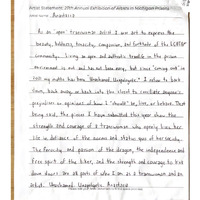 Artist Statement: 29th Annual Exhibition of Artists in Michigan Prisons
Artist Name: Anastasia
As an "open" transwoman artist I use art to express the
beauty, boldness, tenacity, compassion, and fortitude of the LGBTQ+
community. Living as open and authentic transwoman in the prison
environment is not and has not been easy, but since "coming out" in
my motto has been "Unashamed Unapologetic." I refuse to back
down, back away or back into the closet to mediate anyone's
prejudices or opinions of how I "should" be, live, or behave. That
being said, the pieces I have submitted this year show the
strength and courage of a transwoman who openly lives her
life in defiance of the norms and status quo of her society.
The ferocity and passion of the dragon, the independence and
free spirit of the biker, and the strength and courage to kick
down doors are all parts of who I am as a transwoman and an
artist. Unashamed, Unapologetic, Anastasia